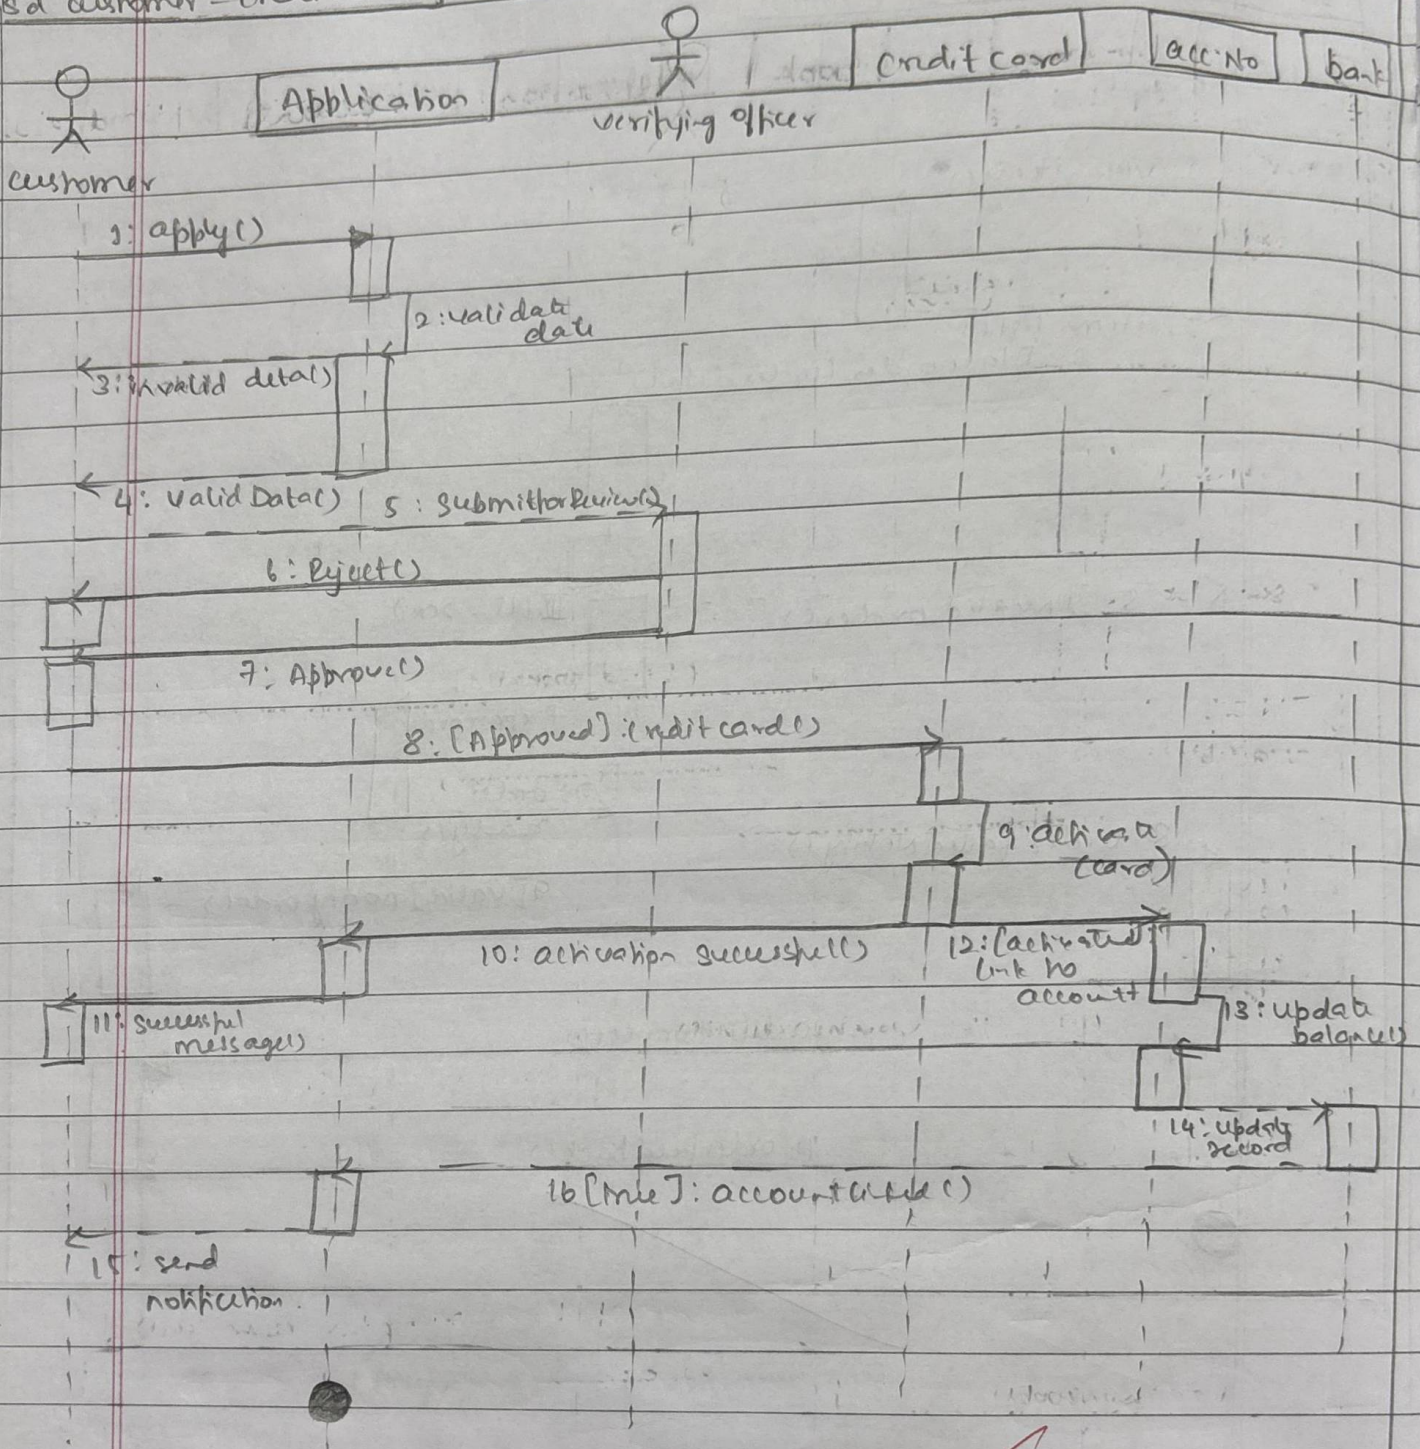 sd customer -
Application
verifying officer
credit card
acc.No
bank
customer
1: apply()
2: validate
data
3: invalid data()
4: Valid Data()
5: submitforReview()
6: Reject()
7: Approve()
8: [Approved]: creditcard()
9: activate
(card)
10: activation successful()
11: successful
message()
12: [activated]
link to
account
13: update
balance()
14: update
record
16 [true]: accountlinked()
15: send
notification.